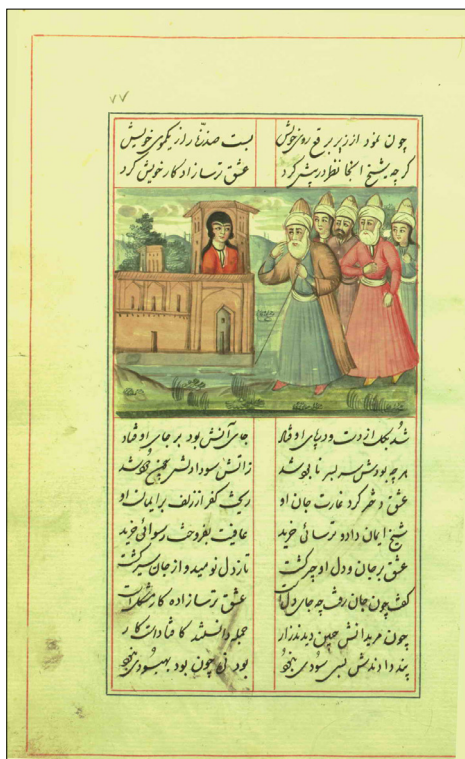 ۷۷
چون نمود از زیر برقع روی خویش بست صد زنار از یکموی خویش
گر چه شیخ آنجا نظر در پیش کرد عشق ترسا زاد کار خویش کرد
شد بکل از دست و در پای اوفتاد جای آتش بود بر جای اوفتاد
هر چه بودش سر بسر نابود شد زاتش سودا دلش شد
عشق دختر کرد غارت جان او ریخت کفر از زلف بر ایمان او
شیخ ایمان داد و ترسائی خرید عافیت بفروخت رسوائی خرید
عشق بر جان و دل او چیر گشت تا ز دل نومید و از جان سیر گشت
گفت چون جان رفت چه جای دلست عشق ترسا زاده کار مشکلست
چون مریدانش چنین دیدند زار جمله دانستند کافتادست کار
پند دادندش بسی سودی نبود بودنی چون بود بهبودی نبود